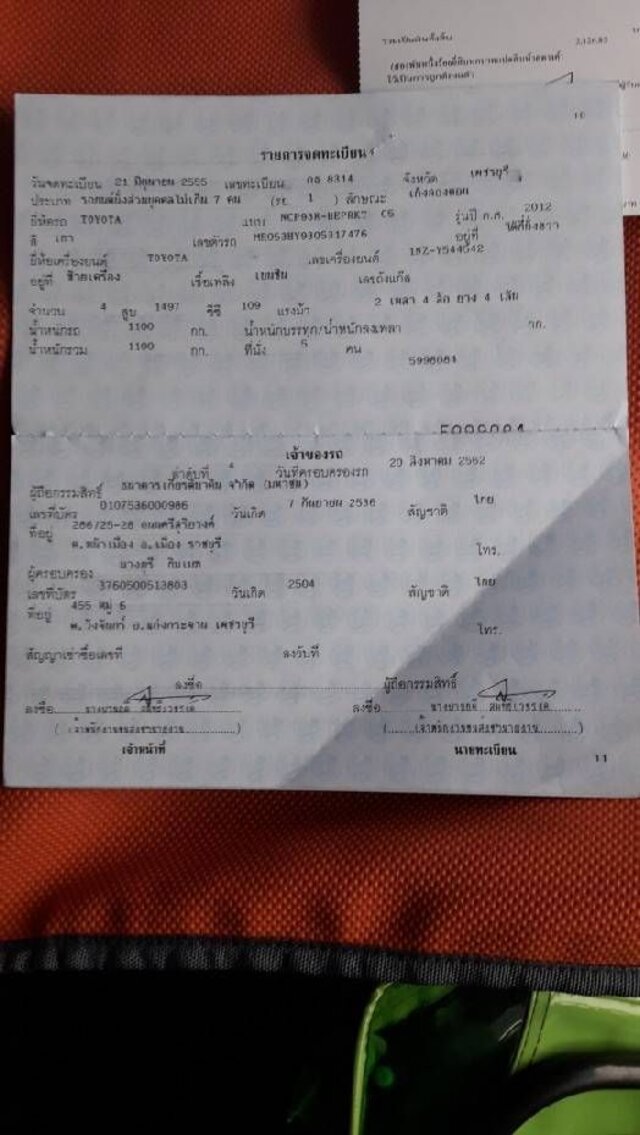 รวมเป็นเงินทั้งสิ้น 2,126.82
10
รายการจดทะเบียน
วันจดทะเบียน 21 มิถุนายน 2555 เลขทะเบียน กธ 8314 จังหวัด เพชรบุรี
ประเภท รถยนต์นั่งส่วนบุคคลไม่เกิน 7 คน (รย. 1 ) ลักษณะ เก๋งสองตอน
ยี่ห้อรถ TOYOTA แบบ NCP93R-BEPRKT รุ่นปี ค.ศ. 2012
สี เทา เลขตัวรถ MR053HY9305317476 อยู่ที่
ยี่ห้อเครื่องยนต์ TOYOTA เลขเครื่องยนต์ 1NZ-Y544542
อยู่ที่ ซ้ายเครื่อง เชื้อเพลิง เบนซิน เลขถังแก๊ส
จำนวน 4 สูบ 1497 ซีซี 109 แรงม้า 2 เพลา 4 ล้อ ยาง 4 เส้น
น้ำหนักรถ 1100 กก. น้ำหนักบรรทุก/น้ำหนักลงเพลา กก.
น้ำหนักรวม 1100 กก. ที่นั่ง 5 คน
5996064
เจ้าของรถ
ลำดับที่ วันที่ครอบครองรถ 20 สิงหาคม 2562
ผู้ถือกรรมสิทธิ์ ธนาคารเกียรตินาคิน จำกัด (มหาชน)
เลขที่บัตร 0107536000986 วันเกิด 7 กันยายน 2536 สัญชาติ ไทย
ที่อยู่ 286/25-28 ถนนศรีสุริยวงศ์
ต.หน้าเมือง อ.เมือง ราชบุรี โทร.
ผู้ครอบครอง
เลขที่บัตร 3760500513803 วันเกิด 2504 สัญชาติ ไทย
ที่อยู่ 455 หมู่ 6
ต.วังจันทร์ อ.แก่งกระจาน เพชรบุรี โทร.
สัญญาเช่าซื้อเลขที่ ลงวันที่
ลงชื่อ ผู้ถือกรรมสิทธิ์
ลงชื่อ ลงชื่อ
(เจ้าพนักงานขนส่งชำนาญงาน) (เจ้าพนักงานขนส่งชำนาญงาน)
เจ้าหน้าที่ นายทะเบียน
11